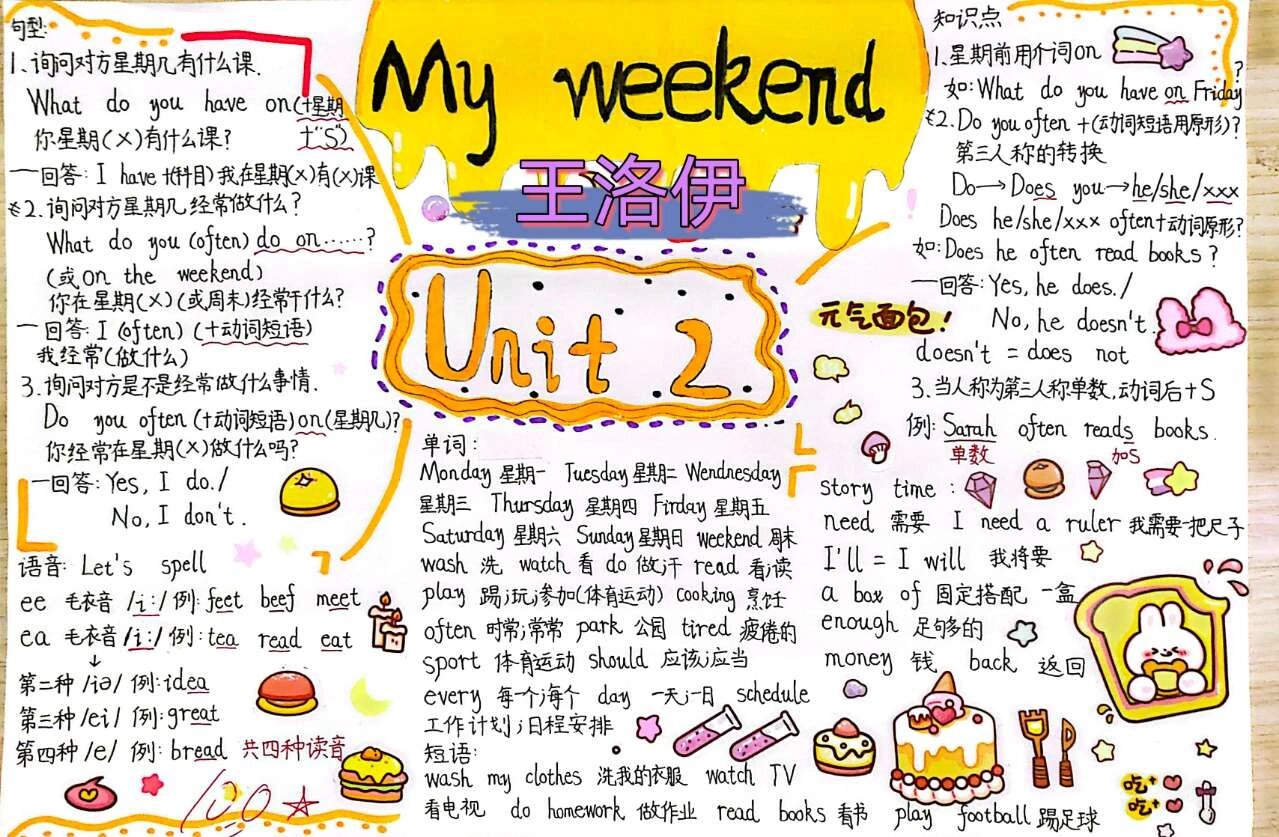 My weekend
王洛伊
Unit 2
句型:
1、询问对方星期几有什么课.
What do you have on(+星期
你星期(X)有什么课? 十"S")
一回答: I have +(科目)我在星期(X)有(X)课
*2.询问对方星期几经常做什么?
What do you (often) do on……?
(或on the weekend)
你在星期(X)(或周末)经常干什么?
一回答: I (often) (+动词短语)
我经常(做什么)
3.询问对方是不是经常做什么事情.
Do you often (+动词短语)on(星期几)?
你经常在星期(X)做什么吗?
一回答: Yes, I do./
No, I don't.
语音: Let's spell
ee 毛衣音 /i:/ 例: feet beef meet
ea 毛衣音 /i:/ 例: tea read eat
↓
第二种 /iə/ 例: idea
第三种 /ei/ 例: great
第四种 /e/ 例: bread 共四种读音
100 ☆
单词:
Monday 星期一 Tuesday 星期二 Wendnesday
星期三 Thursday 星期四 Firday 星期五
Saturday 星期六 Sunday 星期日 weekend 周末
wash 洗 watch 看 do 做;干 read 看;读
play 踢;玩;参加(体育运动) cooking 烹饪
often 时常;常常 park 公园 tired 疲倦的
sport 体育运动 should 应该;应当
every 每一个;每个 day 一天;一日 schedule
工作计划;日程安排
短语:
wash my clothes 洗我的衣服 watch TV
看电视 do homework 做作业 read books 看书 play football 踢足球
知识点
1.星期前用介词on
如: What do you have on Friday?
*2. Do you often +(动词短语用原形)?
第三人称的转换
Do→Does you→he/she/xxx
Does he/she/xxx often+动词原形?
如: Does he often read books?
一回答: Yes, he does./
No, he doesn't.
doesn't = does not
3.当人称为第三人称单数,动词后+S
例: Sarah often reads books.
单数 加S
元气面包!
story time:
need 需要 I need a ruler 我需要一把尺子
I'll = I will 我将要
a box of 固定搭配 一盒
enough 足够多的
money 钱 back 返回
吃+
吃+